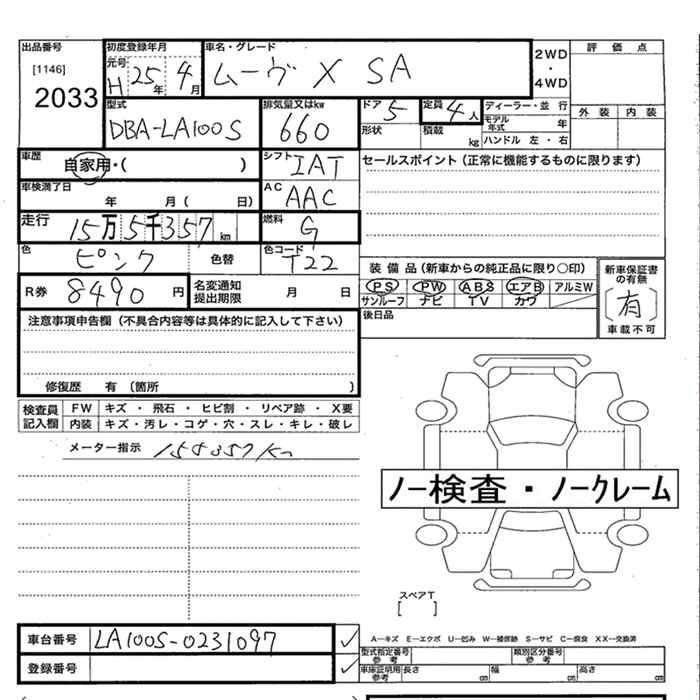 出品番号 初度登録年月 車名・グレード 2WD・4WD 評価点
[1146] 元号 H 25年 4月 ムーヴ X SA
2033 型式 排気量又はkw ドア 5 定員 4人 ディーラー・並行 外装 内装
DBA-LA100S 660 形状 積載 kg モデル年式 年 ハンドル 左・右
車歴 自家用・( ) シフト IAT セールスポイント (正常に機能するものに限ります)
車検満了日 年 月( 日) AC AAC
走行 15万5千357km 燃料 G
色 ピンク 色替 色コード T22 装備品 (新車からの純正品に限り○印) 新車保証書の有無
R券 8490円 名変通知提出期限 月 日 PS PW ABS エアB アルミW 有
サンルーフ ナビ TV カワ 車載不可
注意事項申告欄 (不具合内容等は具体的に記入して下さい) 後日品
修復歴 有 (箇所 )
検査員記入欄 FW キズ・飛石・ヒビ割・リペア跡・X要
内装 キズ・汚レ・コゲ・穴・スレ・キレ・破レ
メーター指示 155357km
ノー検査・ノークレーム
スペアT
[ ]
車台番号 LA100S-0231097 A―キズ E―エクボ U―凹み W―補修跡 S―サビ C―腐食 XX―交換済
登録番号 型式指定番号 参考 類別区分番号 参考
車庫証明用参考 長さ cm 幅 cm 高さ cm